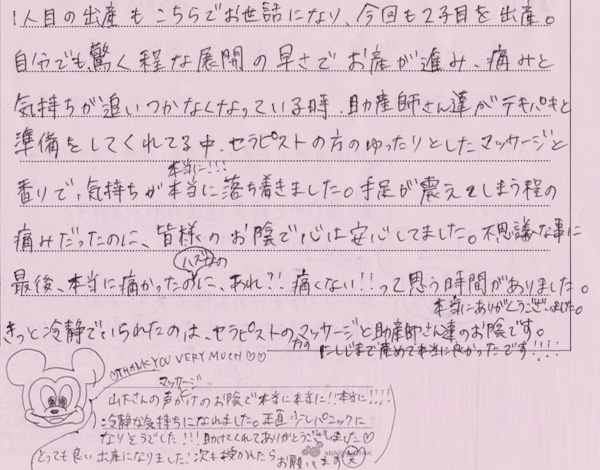 1人目の出産もこちらでお世話になり、今回も2子目を出産。
自分でも驚く程な展開の早さでお産が進み、痛みと
気持ちが追いつかなくなっている時、助産師さん達がテキパキと
準備をしてくれてる中、セラピストの方のゆったりとしたマッサージと
本当に!!!
香りで、気持ちが本当に落ち着きました。手足が震えてしまう程の
痛みだったのに、皆様のお陰で心は安心してました。不思議な事に
ハズなの
最後、本当に痛かったのに、あれ?!痛くない!!って思う時間がありました。
本当にありがとうございました。
きっと冷静でいられたのは、セラピストのマッサージと助産師さん達のお陰です。
方の
にしじまで産めて本当に良かったです!!!!
♡THANK YOU VERY MUCH♡♡
マッサージと
山下さんの声かけのお陰で本当に本当に!!本当に!!!!
冷静な気持ちになれました。正直少しパニックに
なりそうでした!!!助けてくれてありがとうございました♡
とっても良い出産になりました!次も授かれたら
お願いします笑